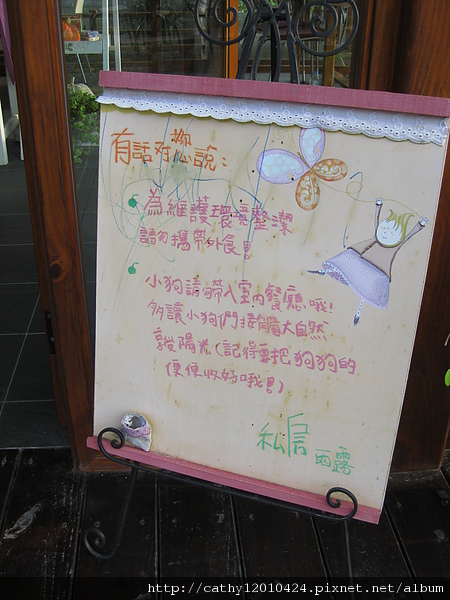 有話對您說：
為維護環境整潔
請勿攜帶外食！
小狗請勿帶入室內餐廳哦！
多讓小狗們接觸大自然
享受陽光（記得要把狗狗的
便便收好哦！）
私信 雨露
http://cathy12010424.pixnet.net/album